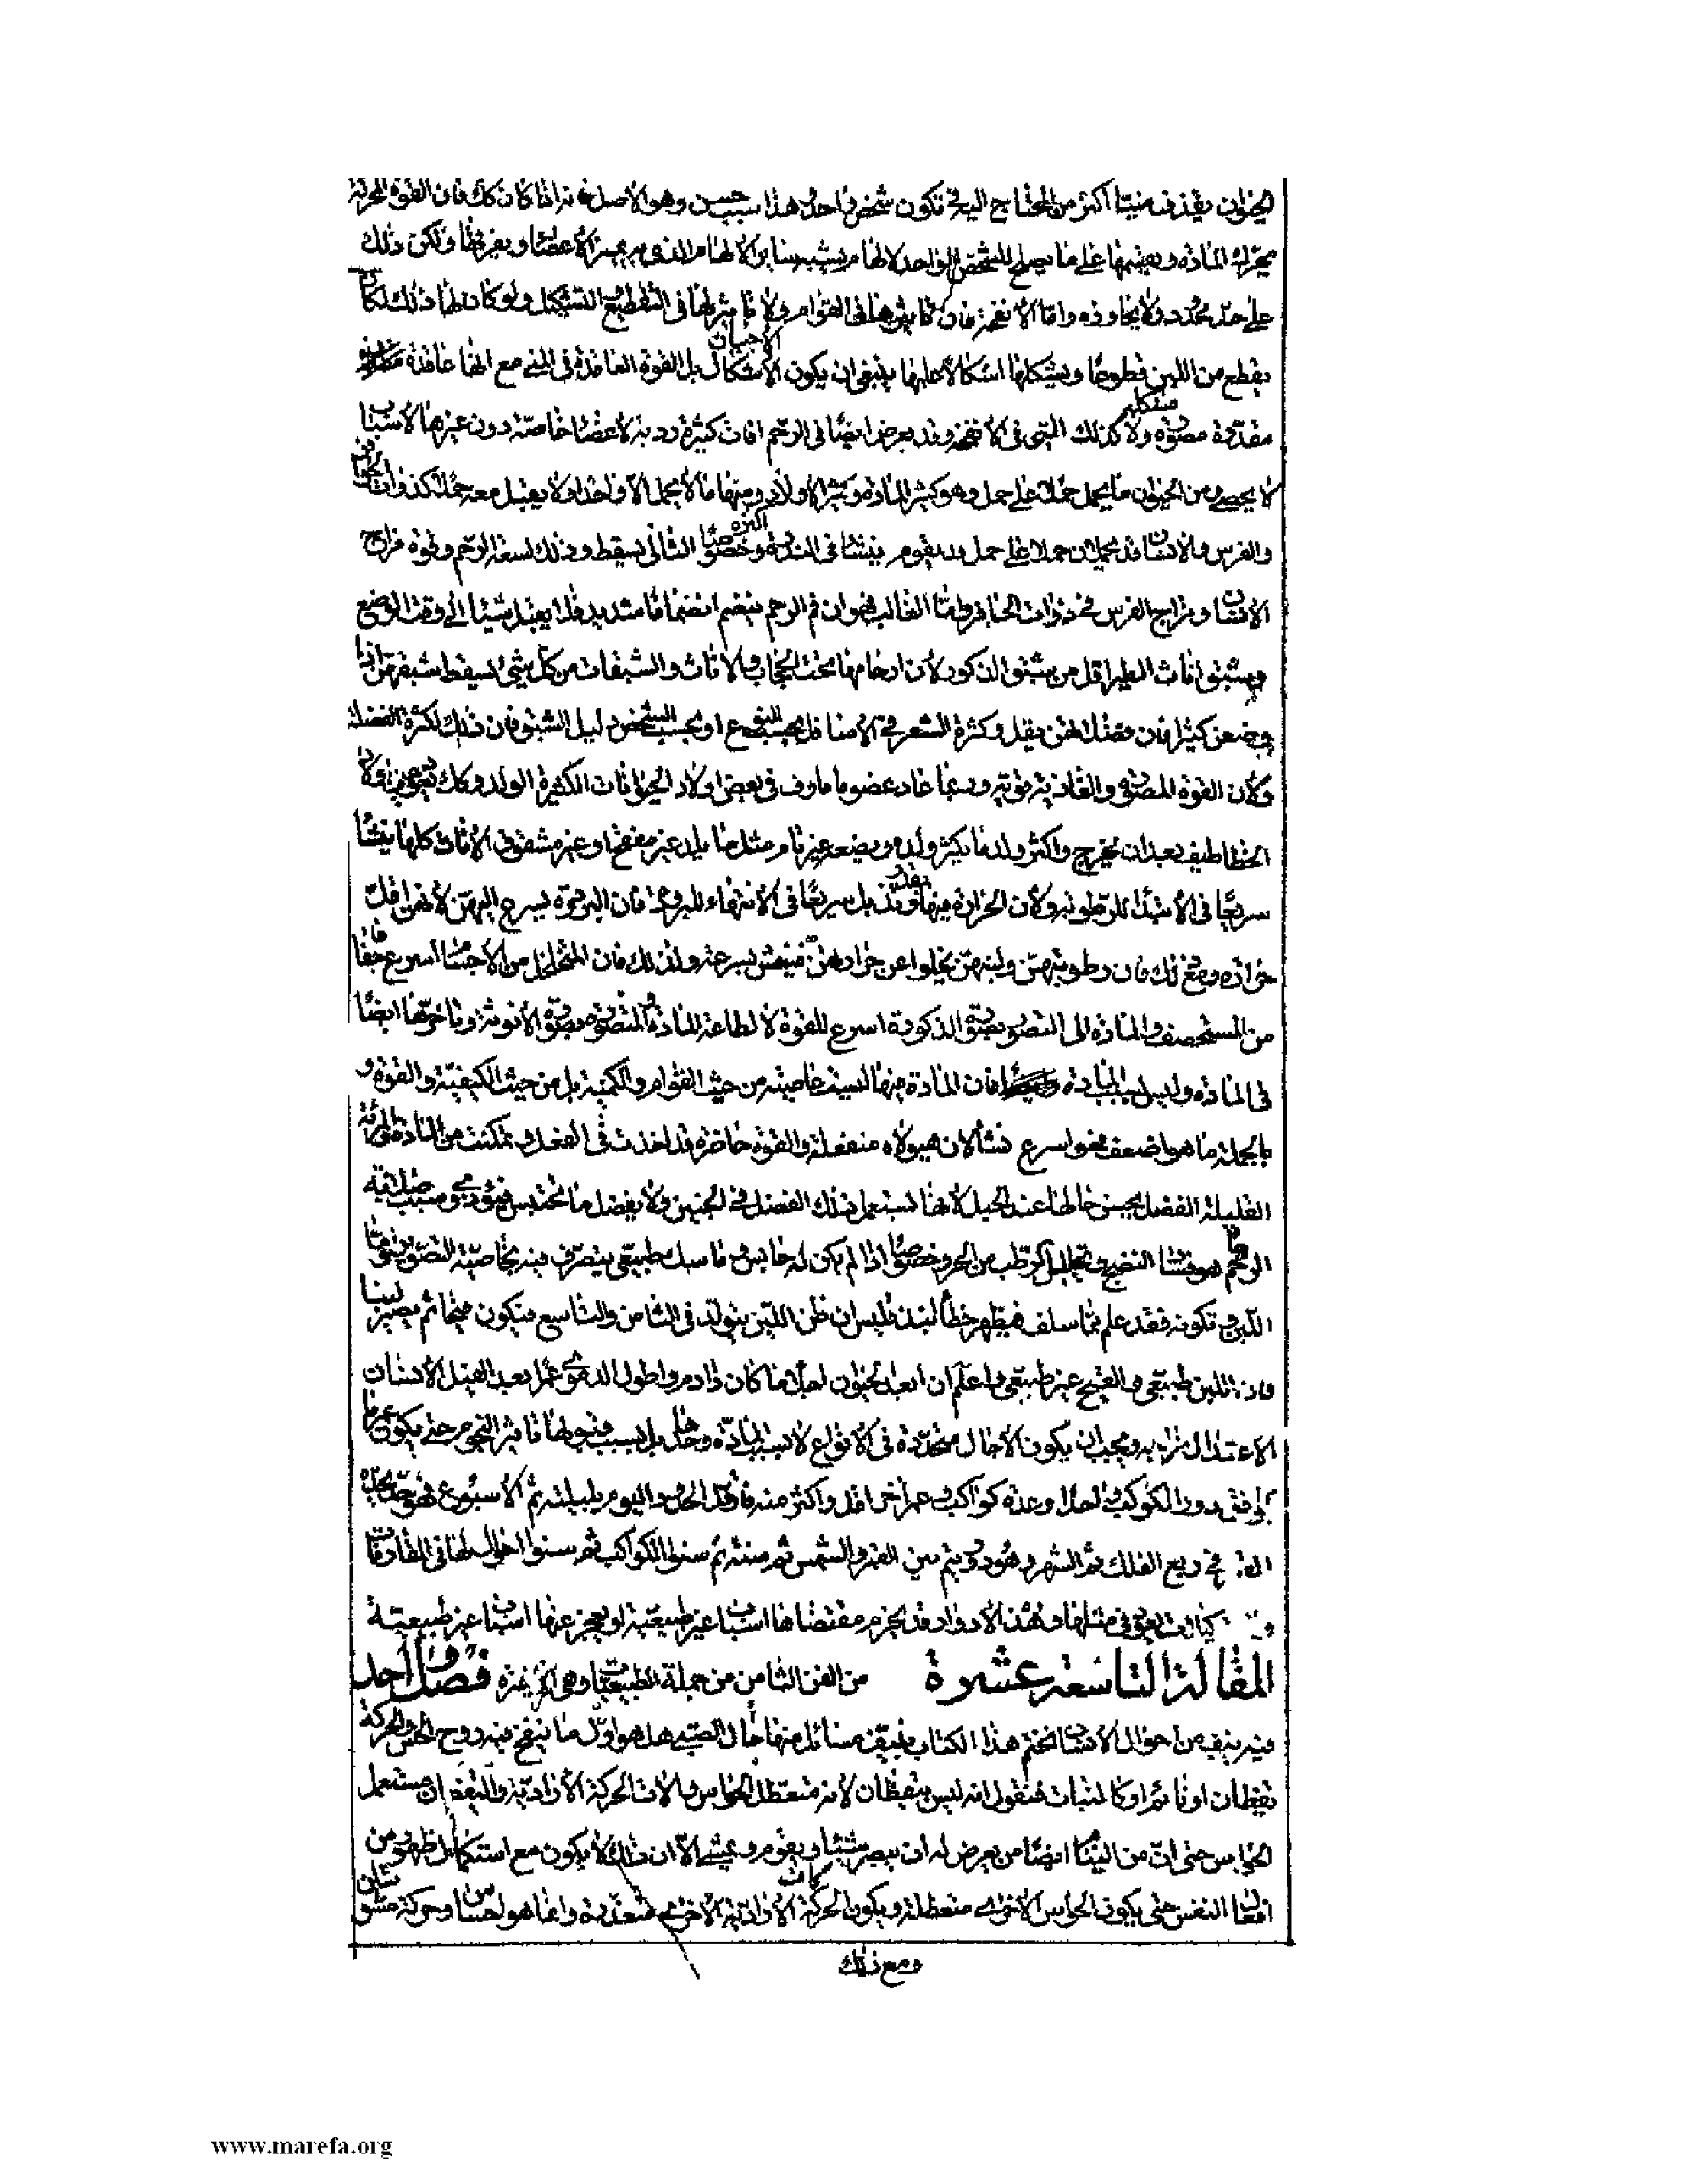 الحيوان يقذف منيا أكثر من المحتاج اليه في تكون شخص واحد هذا سبب حسن وهو الأصل فانه اذا كان كك فان القوة المحركة
يحرك المادة ويقيمها على ما يصلح للشخص الواحد لالهام يشبه سائر الالهام الذي به يميز الأعضاء ويفرقها ولكن ذلك
على حد محدود ولا يجاوزه واما الانفحة فان تأثيرها في القوام ولا تأثير لها في التقطيع التشكيل ولو كان لها ذلك لكان
يقطع من اللبن قطوعا ويشكلها اشكالا عليها ينبغي ان يكون الأجبان الأشكال بل القوة العاقدة في المني مع انها عاقدة
مقدرة مصورة ولا كذلك التي في الأنفحة وقد يعرض ايضا في الرحم افات كثيرة ردية لأعضاء خاصة دون غيرها لأسباب
لا يحصى ومن الحيوان ما يحمل حملا على حمل وهو كثير المادة وكثير الاولاد ومنها ما لا يحمل الا واحدا ولا يقبل معه حملا كذوات الحافر
والفرس والانسان قد يحملان حملا على حمل قد يقوم وينشا في الندرة وخصوصا الثاني يسقط وذلك لسعة الرحم وقوة مزاج
الانسان ومزاج الفرس في ذوات الحافر واما الغالب فهو ان فم الرحم ينضم انضماما شديدا فلا يقبل شيئا الى وقت الوضع
وشبق اناث الطير اقل من شبق الذكور لأن ارحامها تحت الحجاب والاناث والشبقات من كل شيء يسقط شبقهن اذا
وضعن كثيرا فان فضلهن يقل وكثرة الشعر في الأسافل بحسب النوع او بحسب الشخص دليل الشبق فان ذلك لكثرة الفضلة
ولأن القوة المصورة والغاذية قوية وربما عاد عضو ما ماوف في بعض اولاد الحيوانات الكثيرة الولد وكك عيون اولاد
الخطاطيف بعد ان يخرج واكثر ولد ما يكثر ولده ويضعه غير تام مثل ما يلد غير مفتح او غير مشقوق الأناث كلها ينشأ
سريعا في الأبتداء للرطوبة ولأن الحرارة فيها وتذبل سريعا في الانتهاء للبرودة فان البرودة يسرع اليهن لانهن اقل
حرارة ومع ذلك فان رطوبتهن ولينهن يخلوا عن حرارتهن فينفش بسرعة ولذلك فان المتخلخل من الأجسام اسرع جفافا
من المستحصف والمادة الى التصور بصورة الذكورة اسرع للقوة لا لطاعة المادة والتصور بصورة الأنوثة وتأخرها ايضا
في المادة وليس لسبب المادة فان المادة منها ليست عاصية من حيث القوام والكمية بل من حيث الكيفية والقوة و
بالجملة ما هو اضعف فهو اسرع نشأ لان هيولاه منفعلة والقوة حاضرة قد اخذت في الفعل وتمكنت من المادة المراة
القليلة الفضل يحسن حالها عند الحبل لأنها تستعمل ذلك الفضل في الجنين ولا يفضل ما يحتبس فيؤذي وسبب صلبية
الرحم هو فشا النضج في تحليل الرطب من الحر وخصوصا اذا لم يكن له حابس ماسك طبيعي يتصرف فيه بخاصية التصور
اللبن وتكونه فقد علم مما سلف فيظهر خطأ ليندقليس ان ظن اللبن يتولد في الثامن والتاسع فيكون قيحا ثم يصير لبنا
فان اللبن طبيعي والقيح غير طبيعي واعلم ان اعدل الحيوان لعله ما كان ذا دم واطول الدموي عمرا بعد الفيل الأنسان
الاعتدال مزاجه ويجب ان يكون الأجال محددة في الأنواع لا بسبب المادة وحدها بل بسبب قبولها تأثير النجوم حتى يكون عمر ما
يوافق دور الكوكب واحد او عدة كواكب وعمر اخر اقل واكثر منه فاول الحد واليوم بليلته ثم الأسبوع فهو
في ربع الفلك ثم الشهر وهو دور يتم بين القمر والشمس ثم سنة ثم سنو الكواكب ثم سنو احوال لها في المفارقات
في مثلها وهذه الأدوار قد يخرم مقتضاها اسباب غير طبيعية او يعجز عنها اسباب غير طبيعية
المقالة التاسعة عشرة من الفن الثامن من جملة الطبيعيات وهي الأخيرة فصل واحد
فيه نتف من احوال الأنسان نختم هذا الكتاب بنتف مسائل منها حال الصبي هل هو اول ما ينفخ فيه روح الحس والحركة
يقظان او نائم او كالنبات فنقول انه ليس بيقظان لانه متعطل الحواس والات الحركة الأرادية واليقظان مستعمل
الحواس حتى ان من النيام ايضا من يعرض له ان يبصر شيئا ويقوم ويمشي الا ان ذلك لا يكون مع استكمال ظهور من
افعال النفس حتى يكون الحواس الأخرى متعطلة ويكون الحركات الأرادية الأخرى متعذرة وانما هو احساس وحركة
ومع ذلك
www.marefa.org